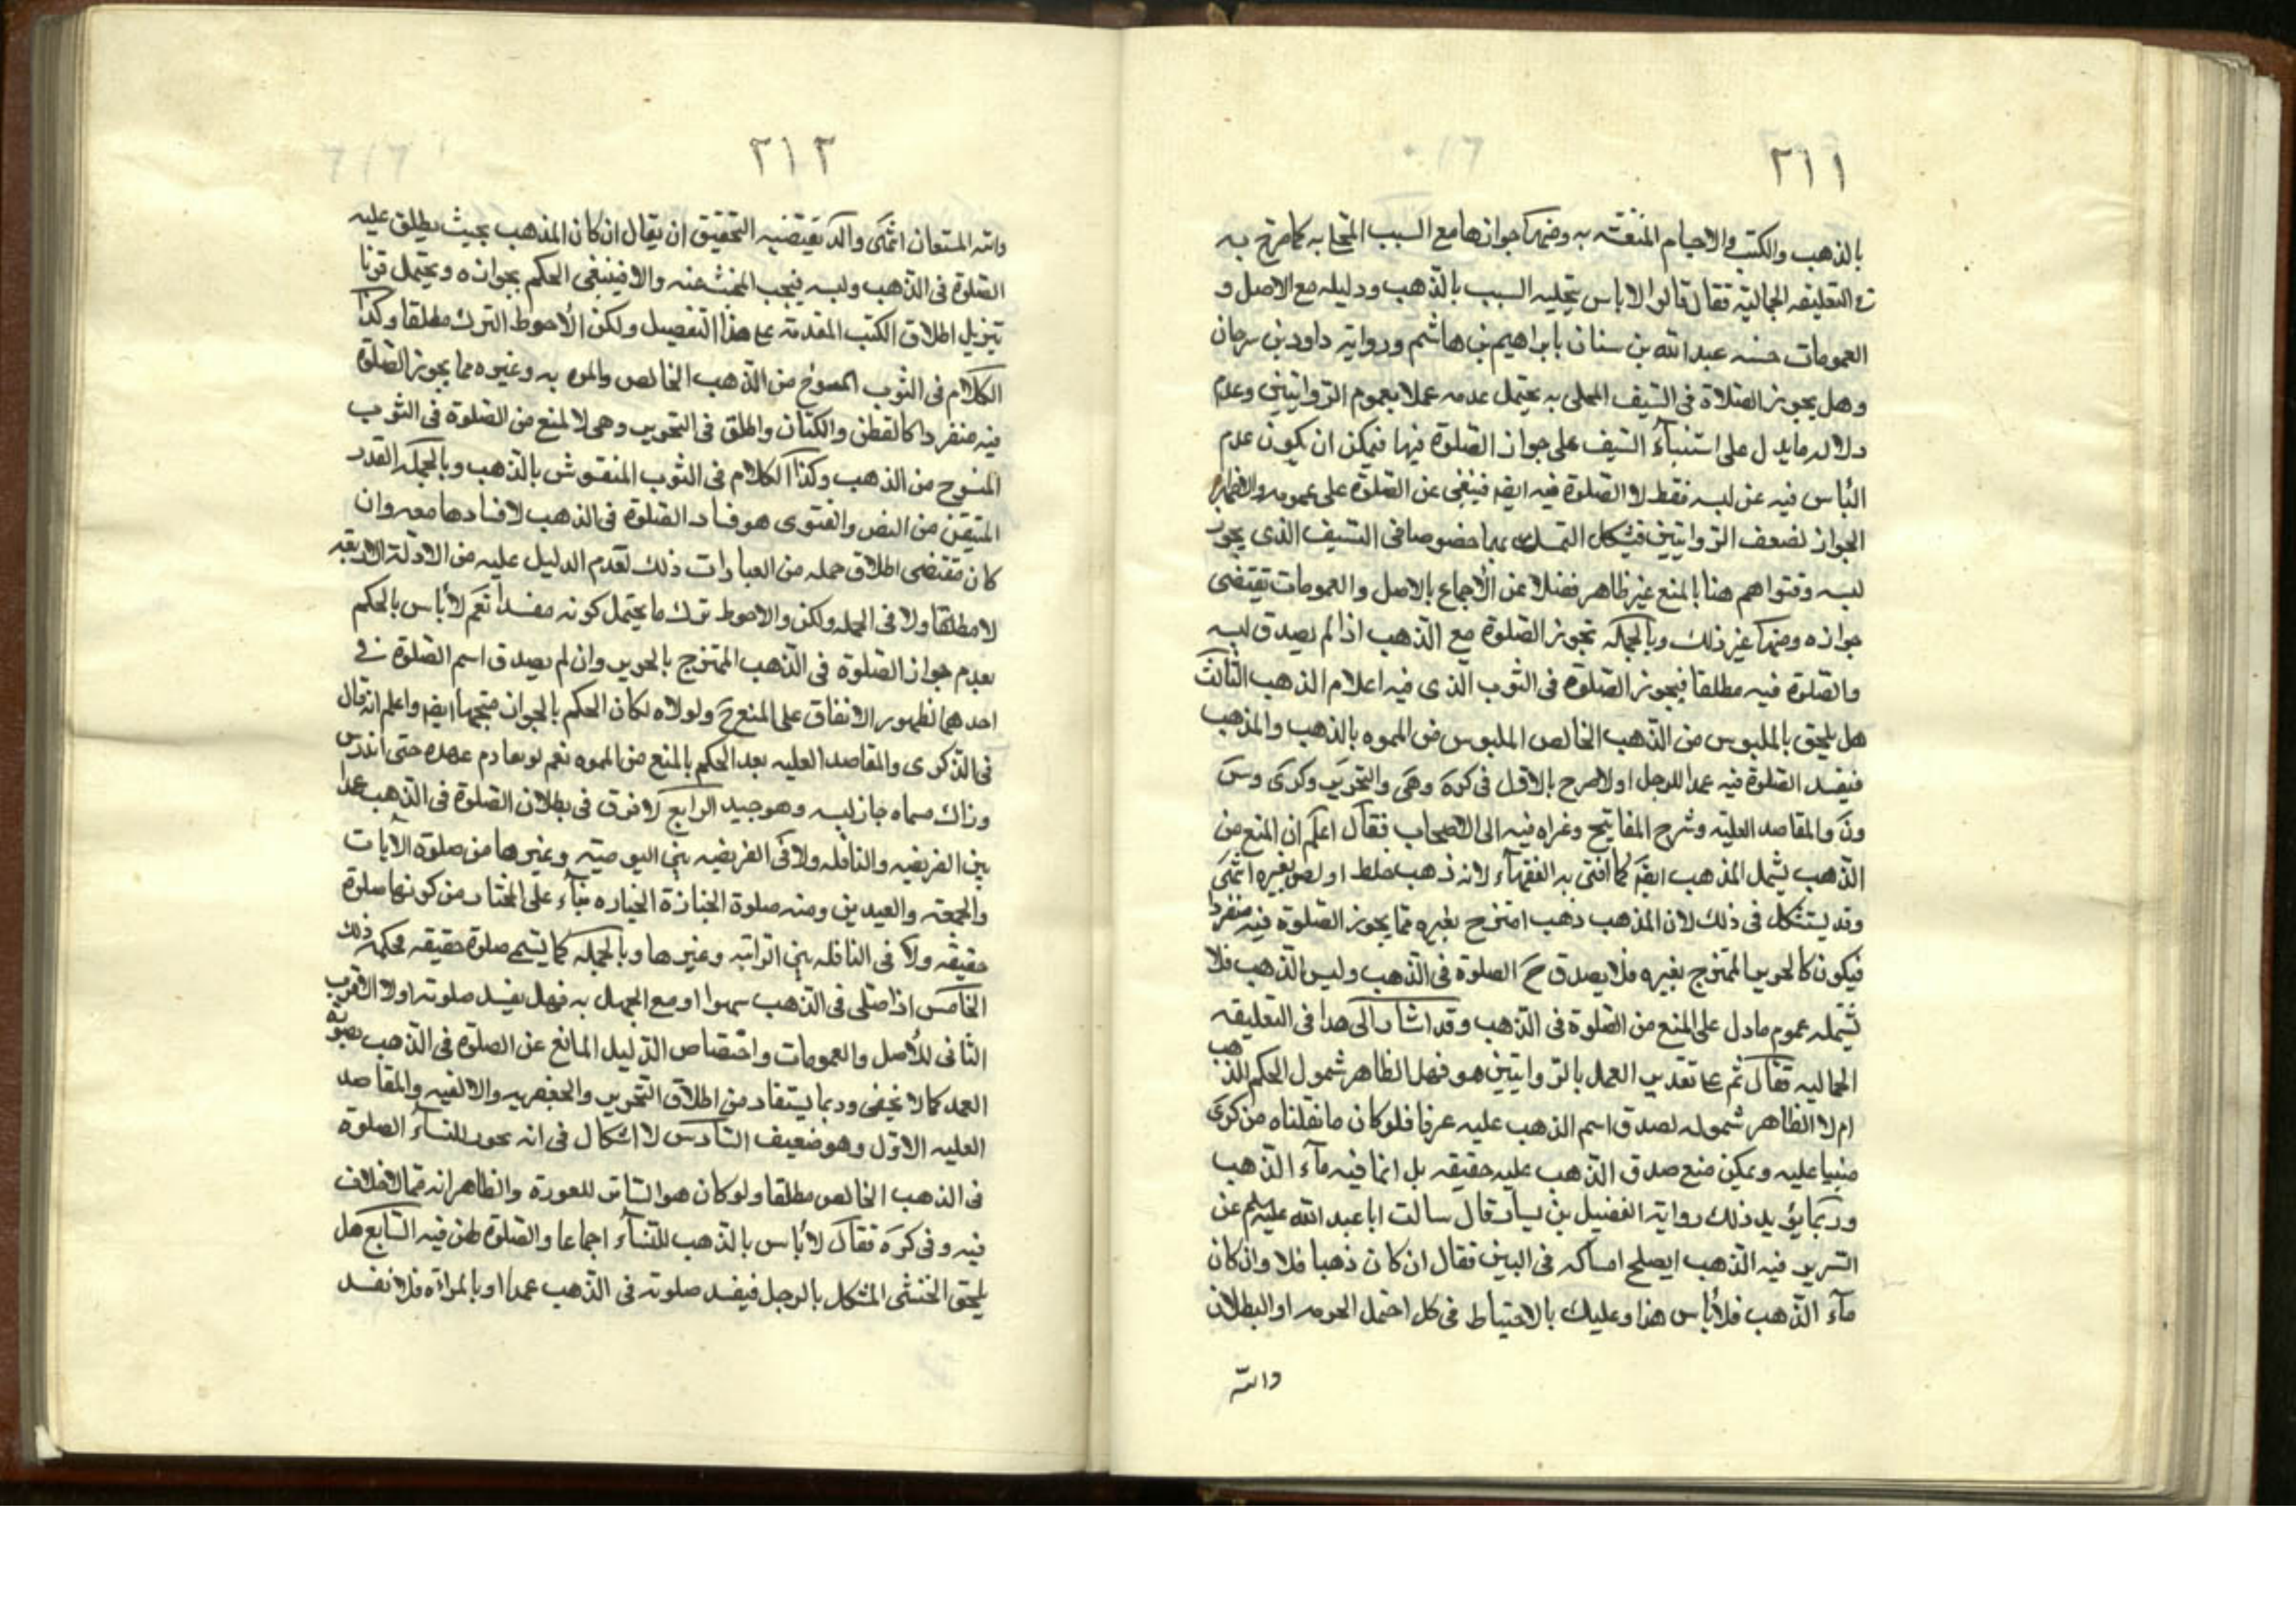 ٢١١
بالذهب والكتب والاجسام المنقشه به ومنها جوازها مع السبب المحلى به كما صرح به
فى التعليقه الجماليه فقال قالوا لا باس بتحليه السبب بالذهب ودليله مع الاصل و
العمومات حسنه عبد الله بن سنان بابراهيم بن هاشم ورواية داود بن سرحان
وهل يجوز الصلاة فى السيف المحلى به يحتمل عدمه عملا بعموم الروايتين وعدم
دلاله ما يدل على استثناء السيف على جواز الصلوة فيها فيمكن ان يكون عدم
الباس فيه عن لبسه فقط لا الصلوة فيه ايضا فيبقى عن الصلوة على عمومه والاظهر
الجواز لضعف الروايتين فيشكل التمسك بهما خصوصا فى السيف الذى يجوز
لبسه وفتواهم هنا بالمنع غير ظاهر فضلا عن الاجماع بالاصل والعمومات تقتضى
جوازه ومنها غير ذلك وبالجمله تجوز الصلوة مع الذهب اذا لم يصدق لبسه
والصلوة فيه مطلقا فيجوز الصلوة فى الثوب الذى فيه اعلام الذهب الثالث
هل يلحق بالملبوس من الذهب الخالص الملبوس من المموه بالذهب والمذهب
فيفسد الصلوة فيه عمدا للرجل او لا صرح بالاول فى كره وهى والتحرير وكرى وس
ون والمقاصد العليه وشرح المفاتيح وعزاه فيه الى الاصحاب فقال اعلم ان المنع من
الذهب يشمل المذهب ايضا كما افتى به الفقهاء لانه ذهب خلط او لصق بغيره انتهى
وقد يستشكل فى ذلك لان المذهب ذهب امتزج بغيره مما يجوز الصلوة فيه منفردا
فيكون كالحرير الممتزج بغيره فلا يصدق ح الصلوة فى الذهب وليس الذهب فلا
يشمله عموم ما دل على المنع من الصلوة فى الذهب وقد اشار الى هذا فى التعليقه
الجماليه فقال ثم على تقدير العمل بالروايتين هو فهل الظاهر شمول الحكم المذهب
ام لا الظاهر شموله لصدق اسم الذهب عليه عرفا فلو كان ما نقلناه من كرى
مبنيا عليه ويمكن منع صدق الذهب عليه حقيقه بل انما فيه ماء الذهب
وربما يؤيد ذلك رواية الفضيل بن يسار قال سالت ابا عبد الله عليه السلم عن
السرير فيه الذهب ايصلح امساكه فى البيت فقال ان كان ذهبا فلا وان كان
ماء الذهب فلا باس هذا وعليك بالاحتياط فى كل احتمل الحرمه او البطلان
والله
٢١٢
والله المستعان انتهى والذى يقتضيه التحقيق ان يقال ان كان المذهب بحيث يطلق عليه
الصلوة فى الذهب ولبسه فيجب المنع عنه والا فينبغى الحكم بجوازه ويحتمل قويا
تنزيل اطلاق الكتب المقدمة على هذا التفصيل ولكن الاحوط الترك مطلقا وكذا
الكلام فى الثوب المنسوج من الذهب الخالص والمموه به وغيره مما يجوز الصلوة
فيه منفردا كالقطن والكتان واطلق فى التحرير وهى لا لمنع من الصلوة فى الثوب
المنسوج من الذهب وكذا الكلام فى الثوب المنقوش بالذهب وبالجمله القدر
المتيقن من النص والفتوى هو فساد الصلوة فى الذهب لا فسادها معه وان
كان مقتضى اطلاق جمله من العبارات ذلك لعدم الدليل عليه من الادلة الاربعه
لا مطلقا ولا فى الجمله ولكن والاحوط ترك ما يحتمل كونه مفسدا نعم لا باس بالحكم
بعدم جواز الصلوة فى الذهب الممتزج بالحرير وان لم يصدق اسم الصلوة فى
احدهما لظهور الاتفاق على المنع ح ولولاه لكان الحكم بالجواز متجها ايضا واعلم انه قال
فى الذكرى والمقاصد العليه بعد الحكم بالمنع من المموه نعم لو تقادم عهده حتى اندرس
وزال مسماه جاز لبسه وهو جيد الرابع لا فرق فى بطلان الصلوة فى الذهب عمدا
بين الفريضه والنافله ولا فى الفريضه بين اليوميه وغيرها من صلوة الآيات
والجمعه والعيدين ومنه صلوة الجنازة بناء على المختار من كونها صلوة
حقيقه ولا فى النافله بين الراتبه وغيرها وبالجمله كما يسمى صلوة حقيقه فحكمه ذلك
الخامس اذا صلى فى الذهب سهوا او مع الجهل به فهل يفسد صلوته او لا الاقرب
الثانى للاصل والعمومات واختصاص الدليل المانع عن الصلوة فى الذهب بصورة
العمد كما لا يخفى وربما يستفاد من اطلاق التحرير والجعفريه والالفيه والمقاصد
العليه الاول وهو ضعيف السادس لا اشكال فى انه يجوز للنساء الصلوة
فى الذهب الخالص مطلقا ولو كان هو الساتر للعورة والظاهر انه مما لا خلاف
فيه وفى كره فقال لا باس بالذهب للنساء اجماعا والصلوة لهن فيه السابع هل
يلحق الخنثى المشكل بالرجل فيفسد صلوته فى الذهب عمدا او بالمراة فلا تفسد